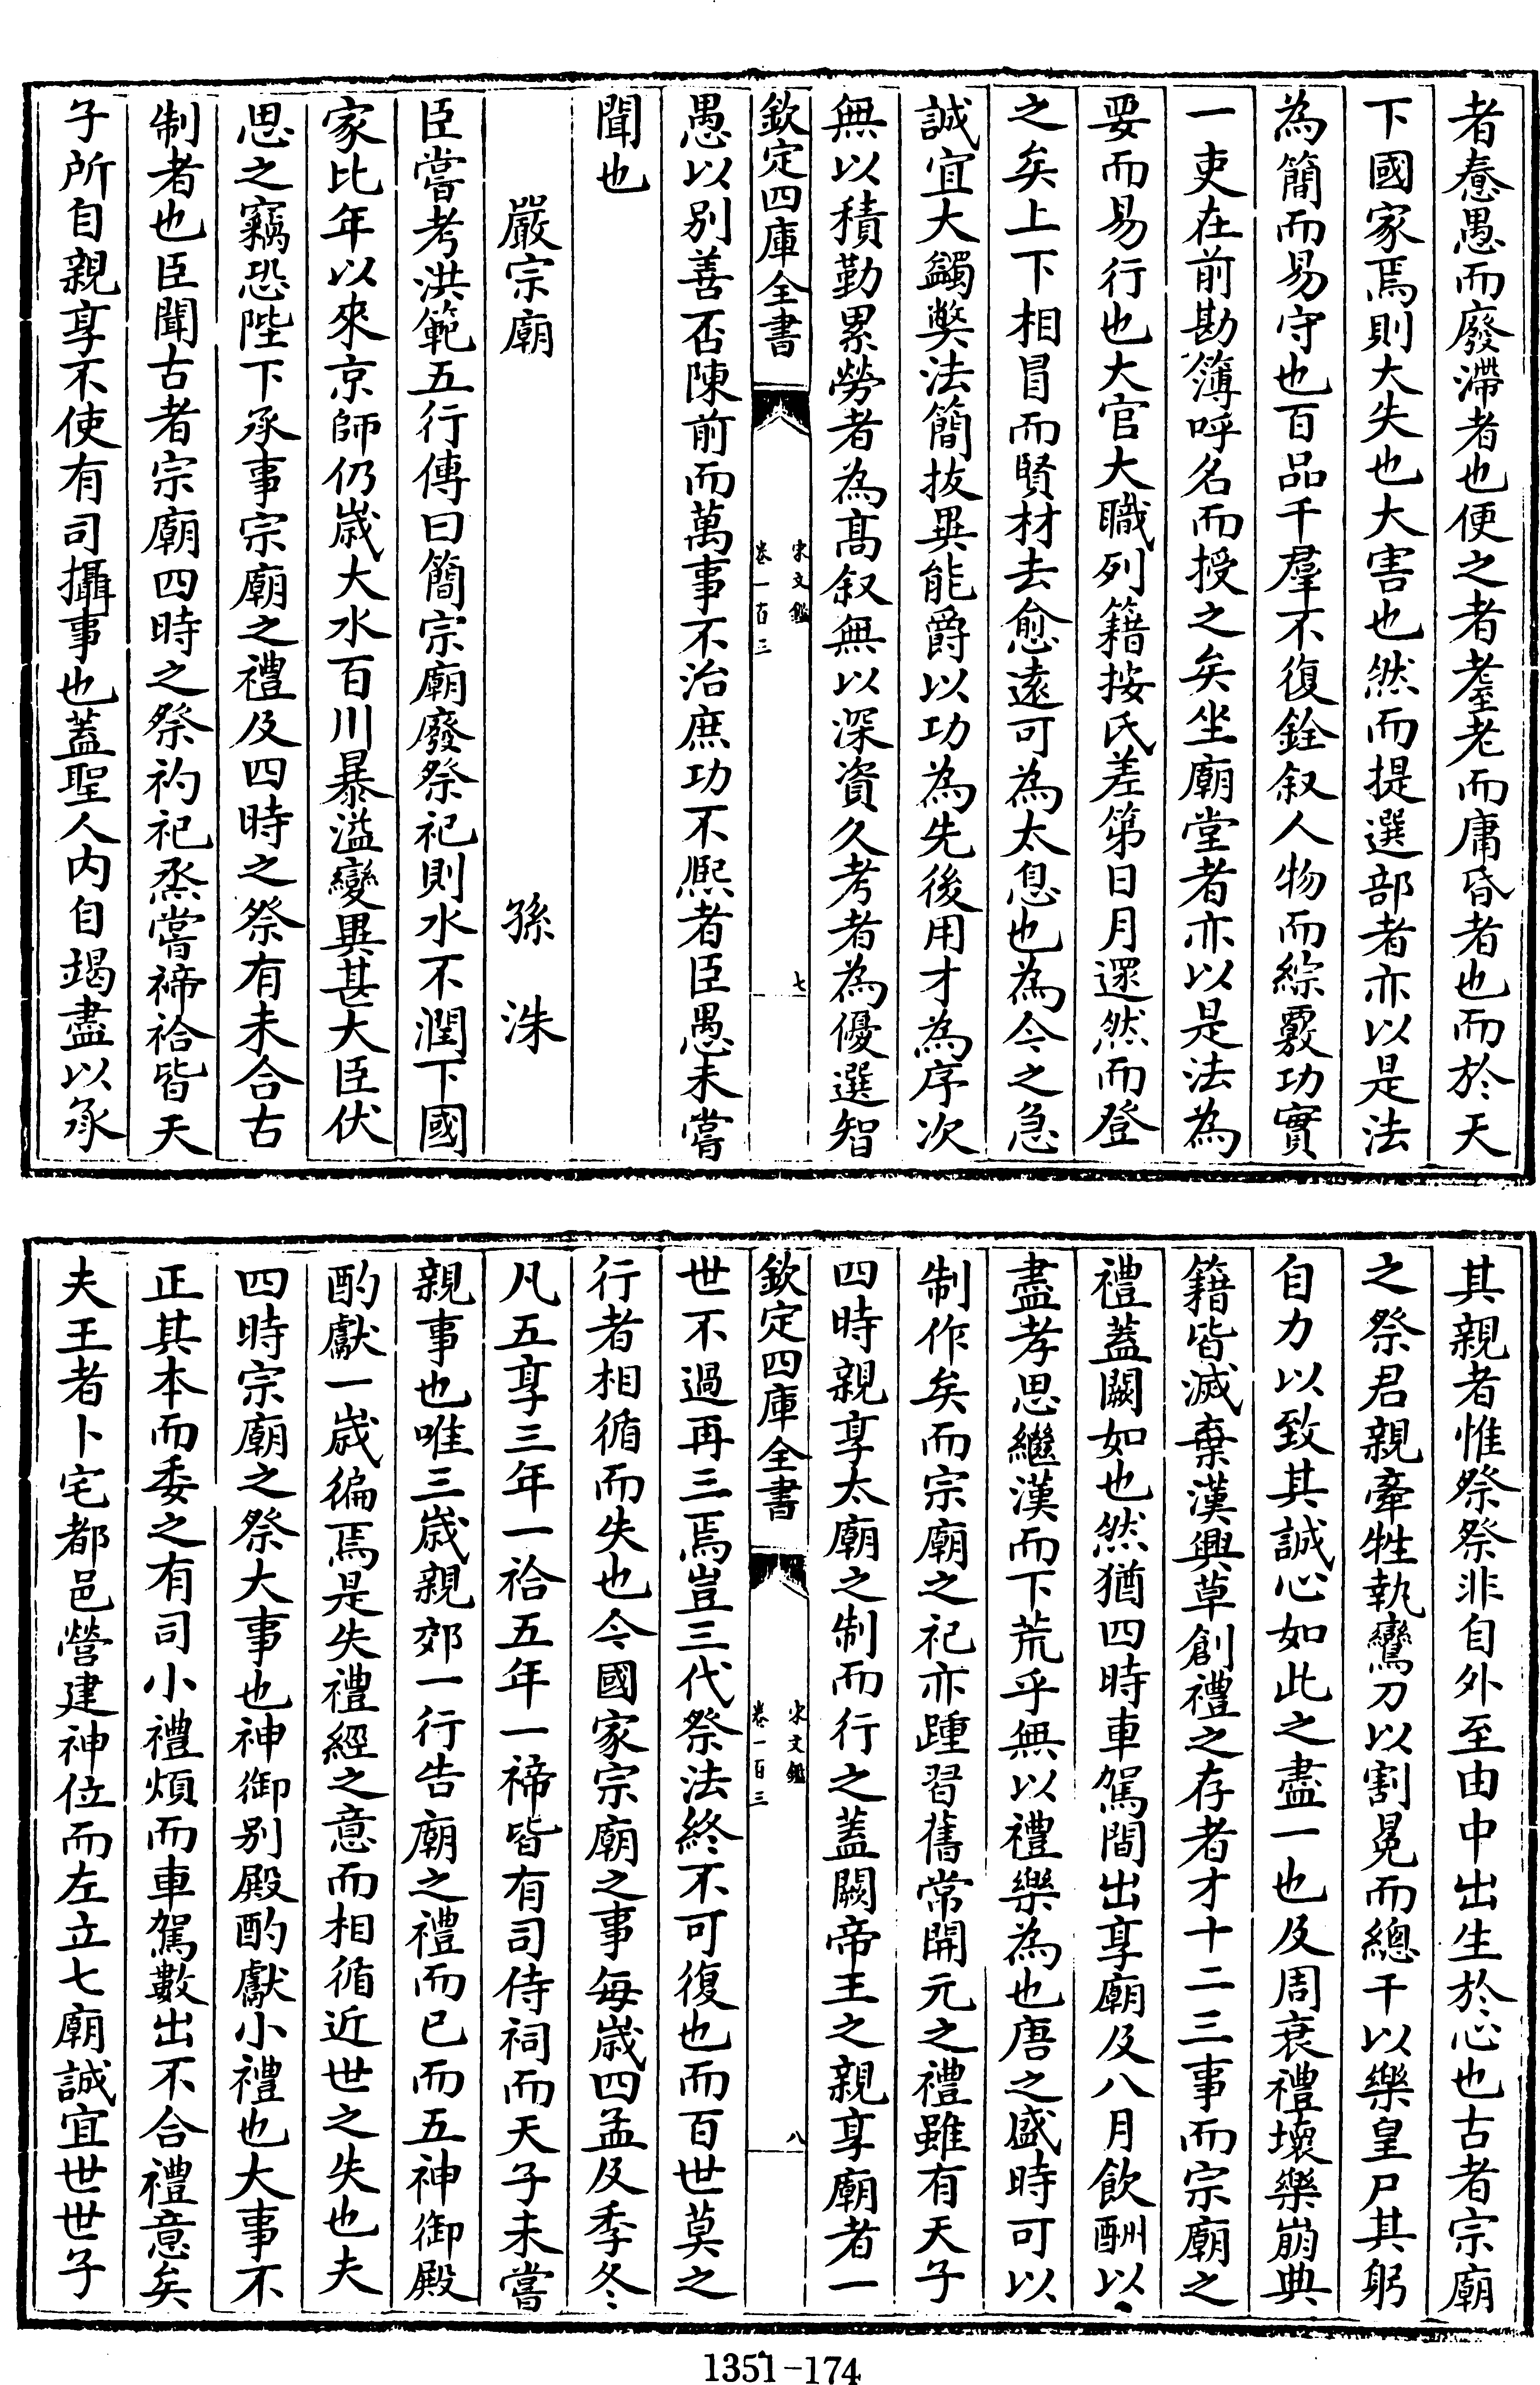 者惷愚而廢滯者也便之者耋老而庸昏者也而於天
下國家焉則大失也大害也然而提選部者亦以是法
為簡而易守也百品千羣不復銓叙人物而綜覈功實
一吏在前勘簿呼名而授之矣坐廟堂者亦以是法為
要而易行也大官大職列籍按氏差第日月還然而登
之矣上下相冒而賢材去愈遠可為太息也為今之急
誠宜大蠲獘法簡拔異能爵以功為先後用才為序次
無以積勤累勞者為髙叙無以深資久考者為優選智
欽定四庫全書
宋文鑑
卷一百三
七
愚以别善否陳前而萬事不治庶功不熈者臣愚未嘗
聞也
嚴宗廟
孫洙
臣嘗考洪範五行傳曰簡宗廟廢祭祀則水不潤下國
家比年以來京師仍歲大水百川暴溢變異甚大臣伏
思之竊恐陛下承事宗廟之禮及四時之祭有未合古
制者也臣聞古者宗廟四時之祭礿祀烝嘗禘祫皆天
子所自親享不使有司攝事也蓋聖人内自竭盡以承
其親者惟祭祭非自外至由中出生於心也古者宗廟
之祭君親牽牲執鸞刀以割冕而總干以樂皇尸其躬
自力以致其誠心如此之盡一也及周衰禮壞樂崩典
籍皆滅棄漢興草創禮之存者才十二三事而宗廟之
禮蓋闕如也然猶四時車駕間出享廟及八月飲酬以
盡孝思繼漢而下荒乎無以禮樂為也唐之盛時可以
制作矣而宗廟之祀亦踵習舊常開元之禮雖有天子
四時親享太廟之制而行之蓋闕帝王之親享廟者一
欽定四庫全書
宋文鑑
卷一百三
八
世不過再三焉豈三代祭法終不可復也而百世莫之
行者相循而失也今國家宗廟之事每歲四孟及季冬
凡五享三年一祫五年一禘皆有司侍祠而天子未嘗
親事也唯三歲親郊一行告廟之禮而已而五神御殿
酌獻一歲徧焉是失禮經之意而相循近世之失也夫
四時宗廟之祭大事也神御别殿酌獻小禮也大事不
正其本而委之有司小禮煩而車駕數出不合禮意矣
夫王者卜宅都邑營建神位而左立七廟誠宜世世子
1351-174